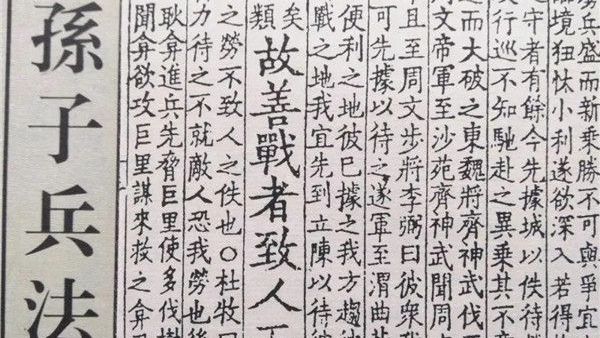 兵盛而新乗勝不可與爭宜
臨境狃忕小利遂欲深入若得
之守者有餘今先據城以佚待
行巡不知馳赴之異乗其不
之而大破之東魏將齊神武伐
文帝軍至沙苑齊神武聞周
且至周文步將李弼曰彼衆我
可先據以待之遂軍至渭曲
便利之地彼已據之我方趨彼
戰之地我宜先到立陳以待
矣
類
故善戰者致人
之勞不致人之佚也○杜牧
力待之不就敵人恐我勞也後
耿弇進兵先脅巨里使多伐樹
聞弇欲攻巨里謀來救之弇
孫子兵法